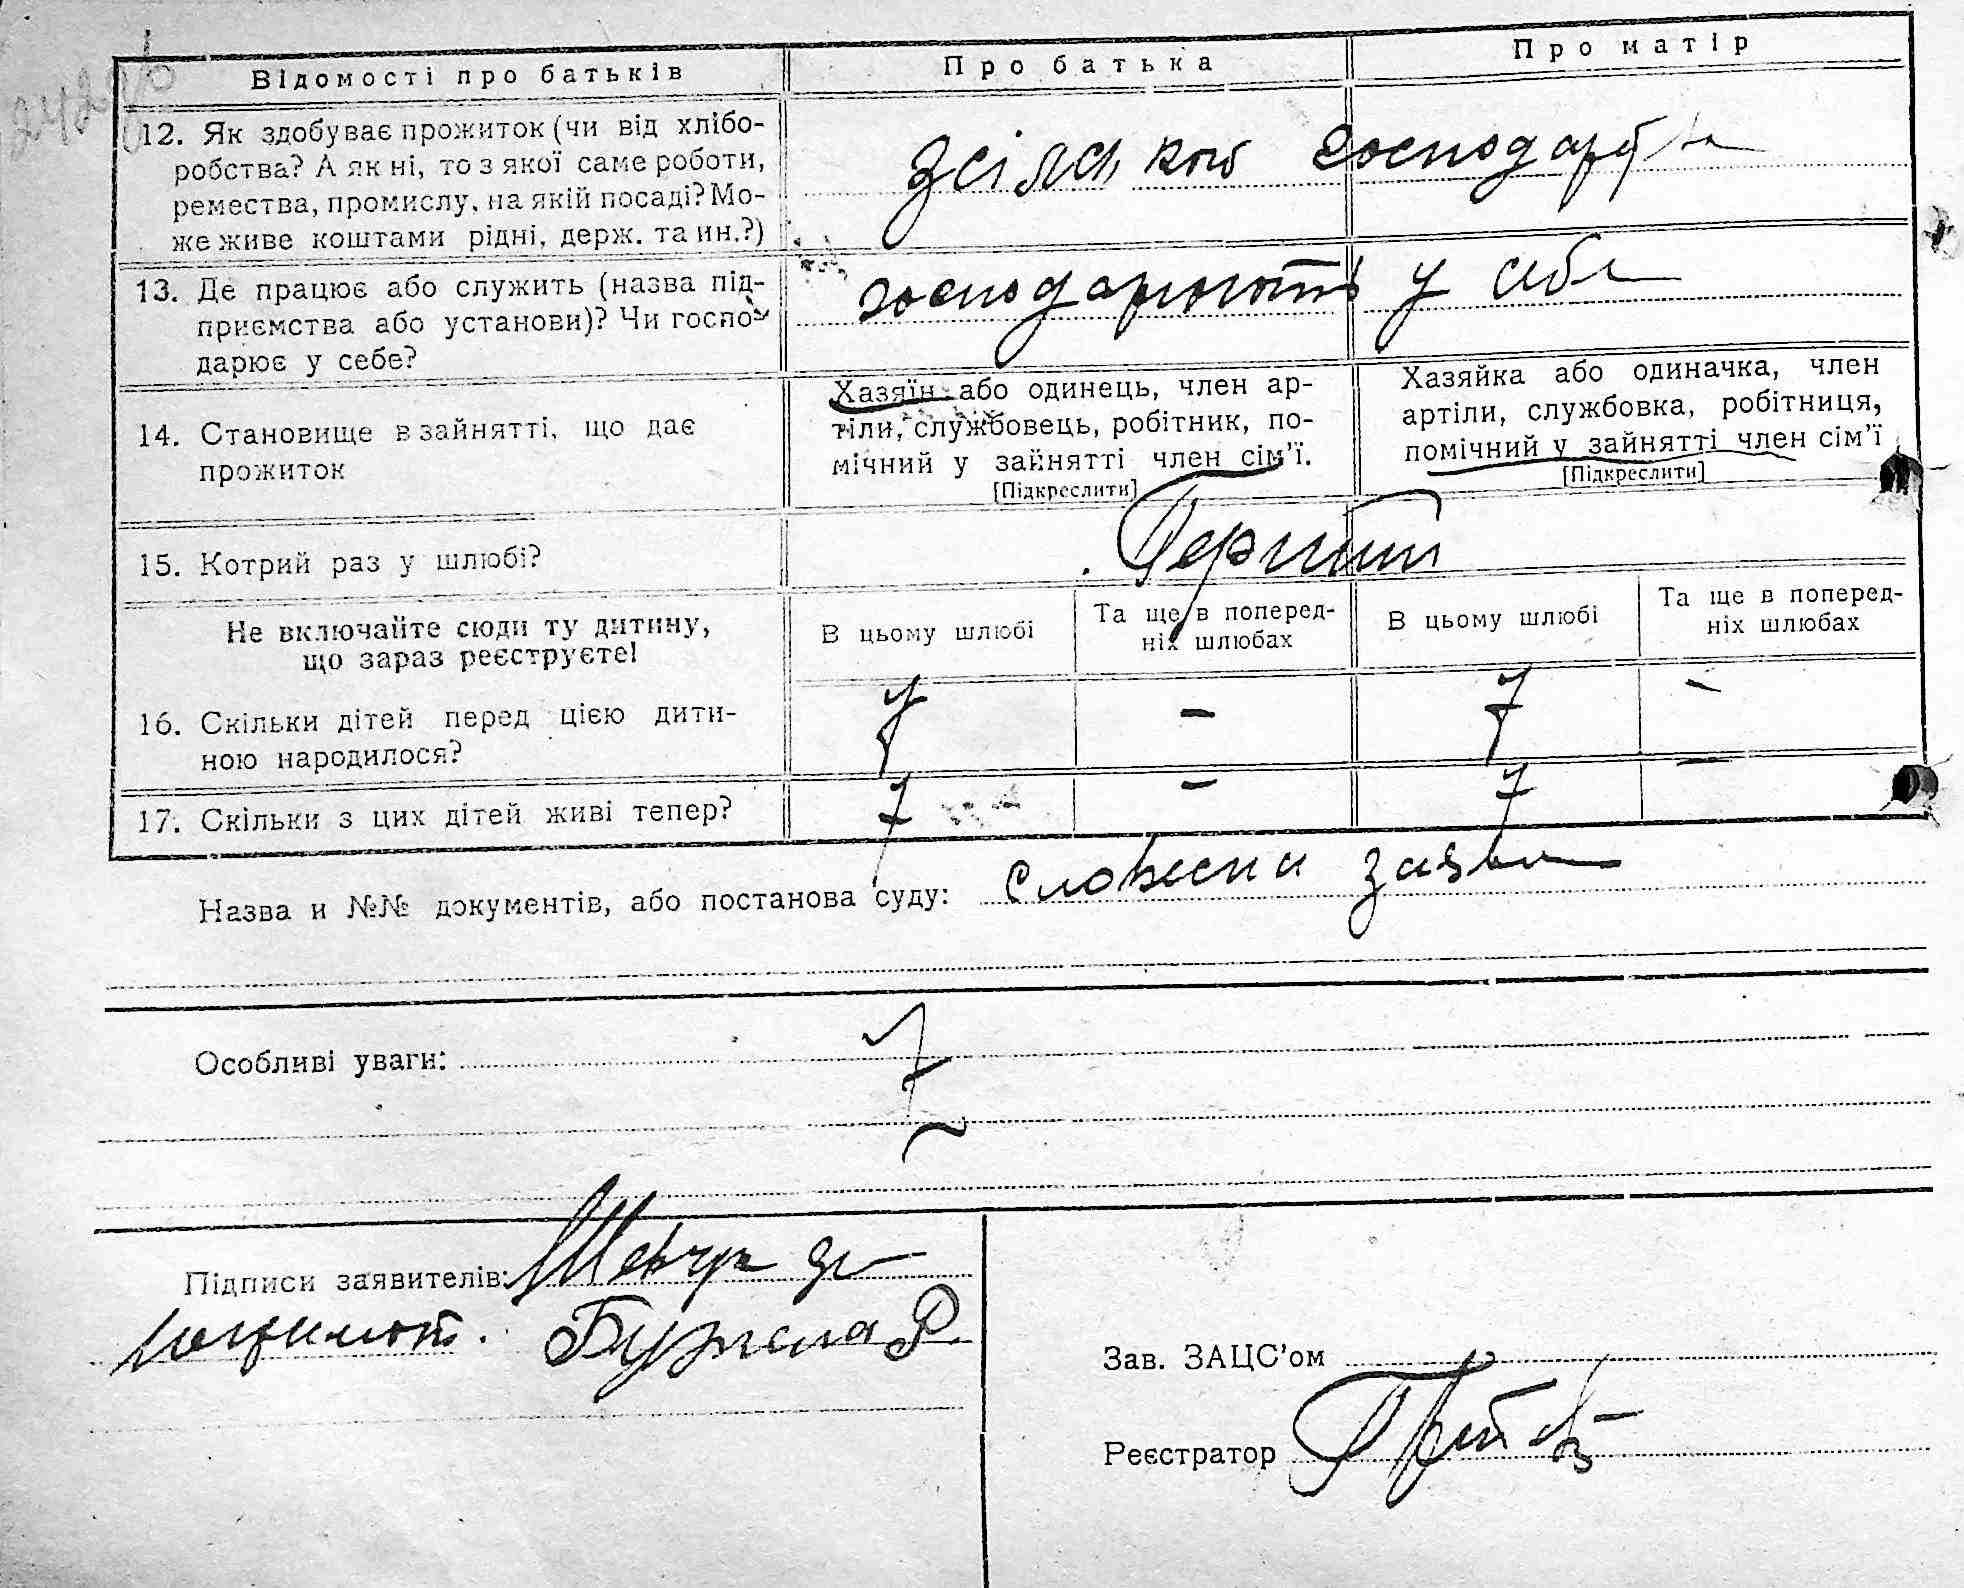 Відомості про батьків
Про батька
Про матір
12. Як здобуває прожиток (чи від хлібо-
робства? А як ні, то з якої саме роботи,
ремества, промислу, на якій посаді? Мо-
же живе коштами рідні, держ. та ин.?)
господарства
13. Де працює або служить (назва під-
приємства або установи)? Чи госпо-
дарює у себе?
господарюють у себе
14. Становище в зайнятті, що дає
прожиток
Хазяїн або одинець, член ар-
тіли, службовець, робітник, по-
мічний у зайнятті член сім'ї.
[Підкреслити]
Хазяйка або одиначка, член
артіли, службовка, робітниця,
помічний у зайнятті член сім'ї
[Підкреслити]
15. Котрий раз у шлюбі?
Перший
Не включайте сюди ту дитину,
що зараз реєструєте!
В цьому шлюбі
Та ще в поперед-
ніх шлюбах
В цьому шлюбі
Та ще в поперед-
ніх шлюбах
16. Скільки дітей перед цією дити-
ною народилося?
7 – 7 –
17. Скільки з цих дітей живі тепер?
7 – 7 –
Назва и №№ документів, або постанова суду: словесна заява
Особливі уваги:
Підписи заявителів: Шевчук
Зав. ЗАЦС'ом
Реєстратор